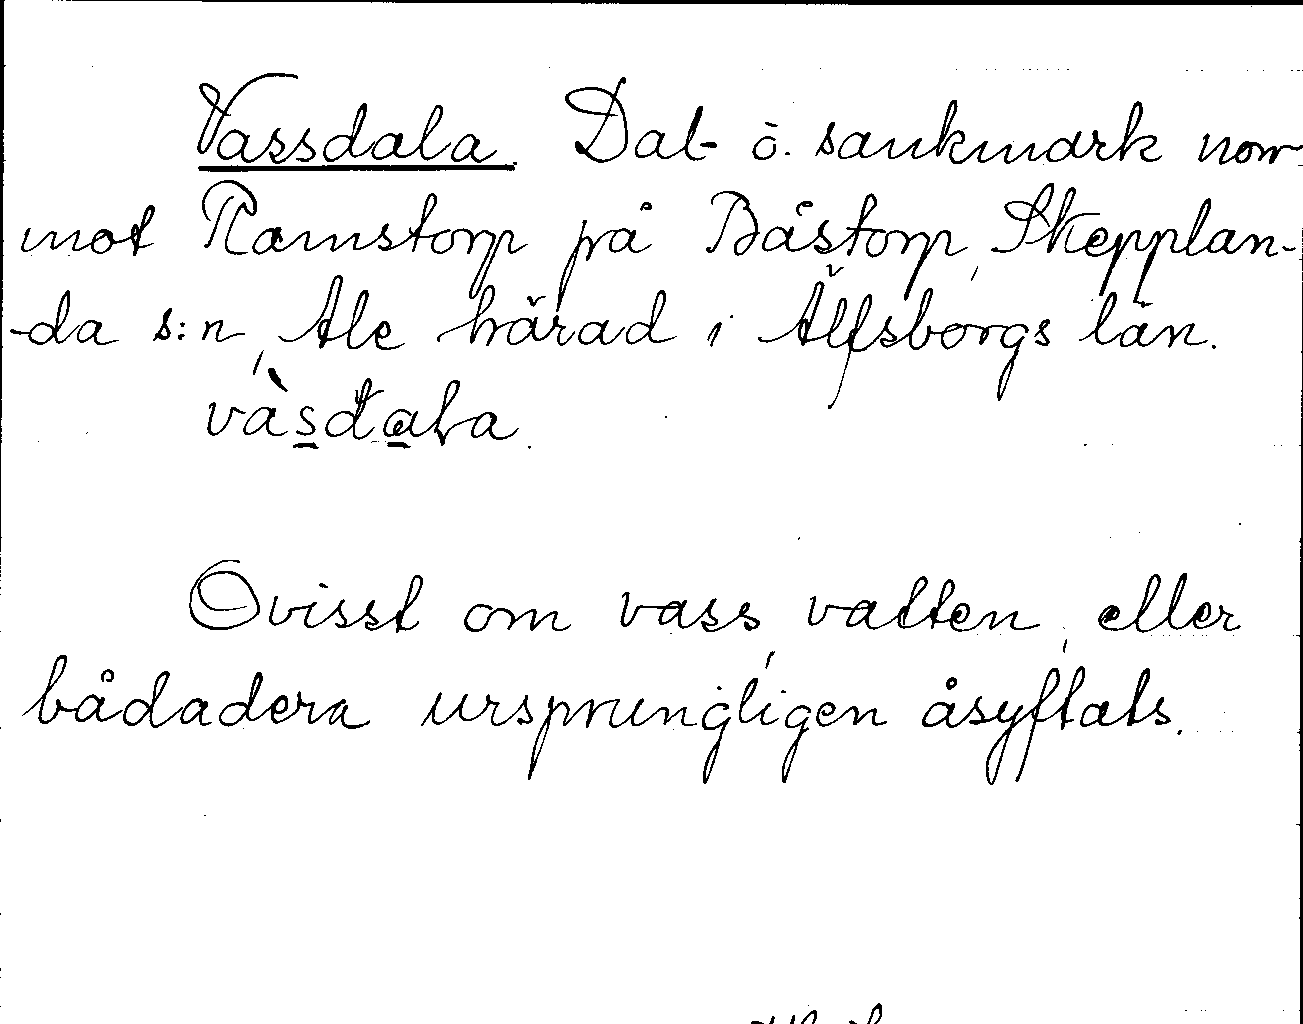 Vassdala. Dal- o. sankmark norr
mot Ramstorp på Båstorp, Skepplan-
-da s:n, Ale härad i Älfsborgs län.
vàsdala.
Ovisst om vass, vatten, eller
bådadera ursprungligen åsyftats.